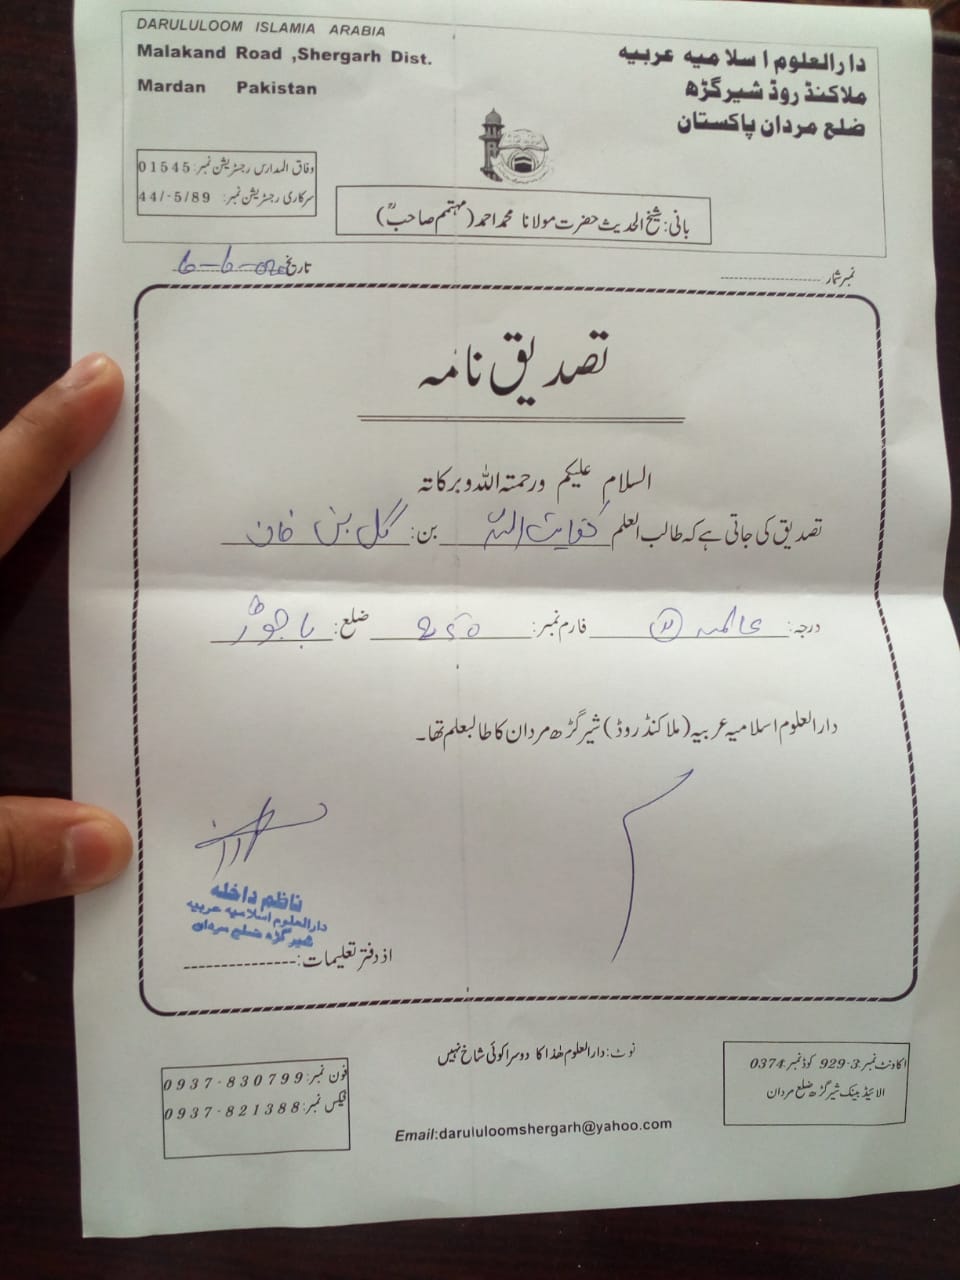 DARULULOOM ISLAMIA ARABIA
Malakand Road ,Shergarh Dist.
Mardan Pakistan
دارالعلوم اسلامیه عربیه
ملاکنڈ روڈ شیرگڑھ
ضلع مردان پاکستان
وفاق المدارس رجسٹریشن نمبر: 01545
سرکاری رجسٹریشن نمبر: 44/-5/89
بانی: شیخ الحدیث حضرت مولانا محمد احمد (مہتمم صاحبؒ)
نمبر شمار
تاریخ
تصدیق نامہ
السلام علیکم ورحمتہ اللہ وبرکاتہ
تصدیق کی جاتی ہے کہ طالب العلم کفایت اللہ بن: گل بن خان
درجہ: عالمیہ فارم نمبر: ۲۵۰ ضلع: باجوڑ
دارالعلوم اسلامیہ عربیہ (ملاکنڈ روڈ) شیر گڑھ مردان کا طالبعلم تھا۔
ناظم داخلہ
دارالعلوم اسلامیه عربیه
شیر گڑھ ضلع مردان
از دفتر تعلیمات:
نوٹ: دارالعلوم ھٰذا کا دوسرا کوئی شاخ نہیں
فون نمبر: 0937-830799
فیکس نمبر: 0937-821388
اکاونٹ نمبر: 3-929 کوڈ نمبر: 0374
الائیڈ بینک شیرگڑھ ضلع مردان
Email:darululoomshergarh@yahoo.com